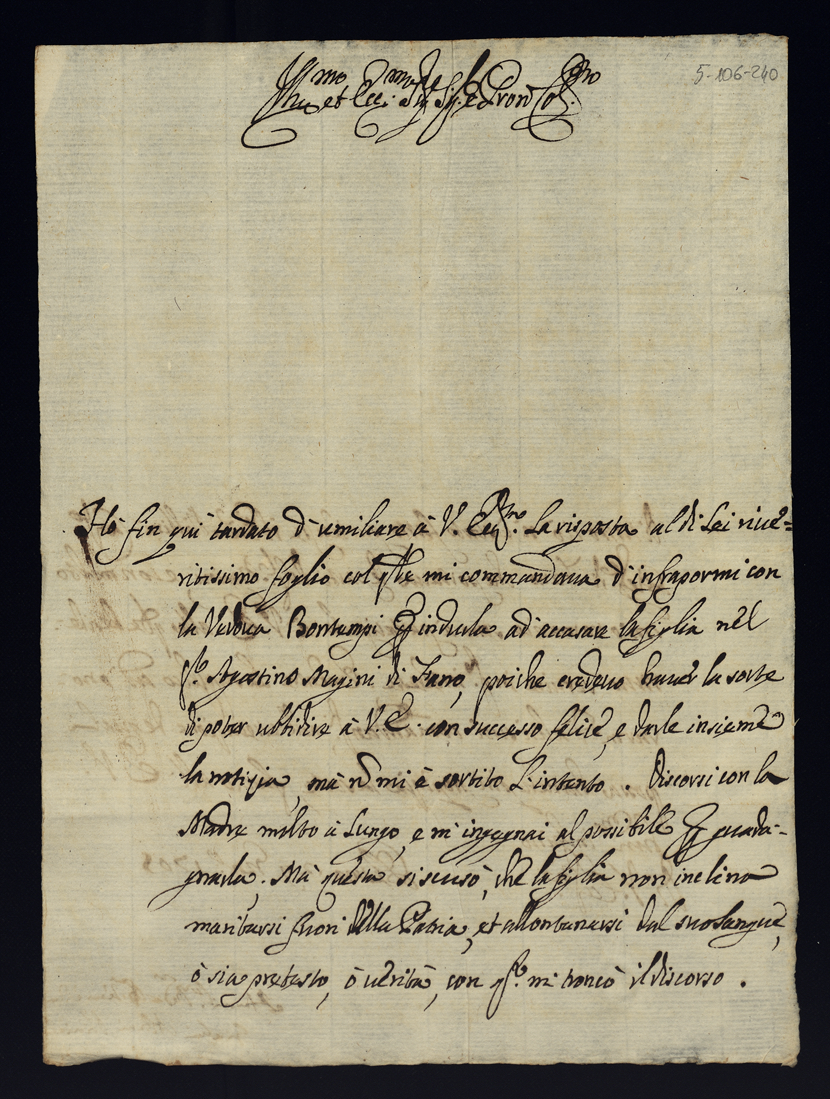 5-106-240
Ill.mo et Ecc.mo Sig. Sig. e Pron Col.mo
Hò fin qui tardato d'umiliare à V. Ecc. la risposta al di Lei riue=
ritissimo foglio col qle mi commandaua d'infrapormi con
la Vedoua Bontempi indurla ad accasare la figlia nel
Sr. Agostino Magini di Fano, poiche credeuo hauer la sorte
di poter ubbidire à V.E. con successo felice, e darle insieme
la notizia, mà nō mi è sortito l'intento. Discorsi con la
Madre molto à lungo, e m'ingegnai al possibile guada-
gnarla. Mà questa si scusò, che la figlia non inclina
maritarsi fuori della Patria, et allontanarsi dal suo sangue,
ò sia pretesto, ò uerità, con qsto mi troncò il discorso.